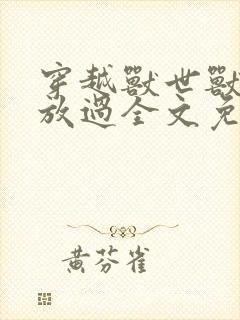 穿越獸世獸
放過全文免
黃芬雀